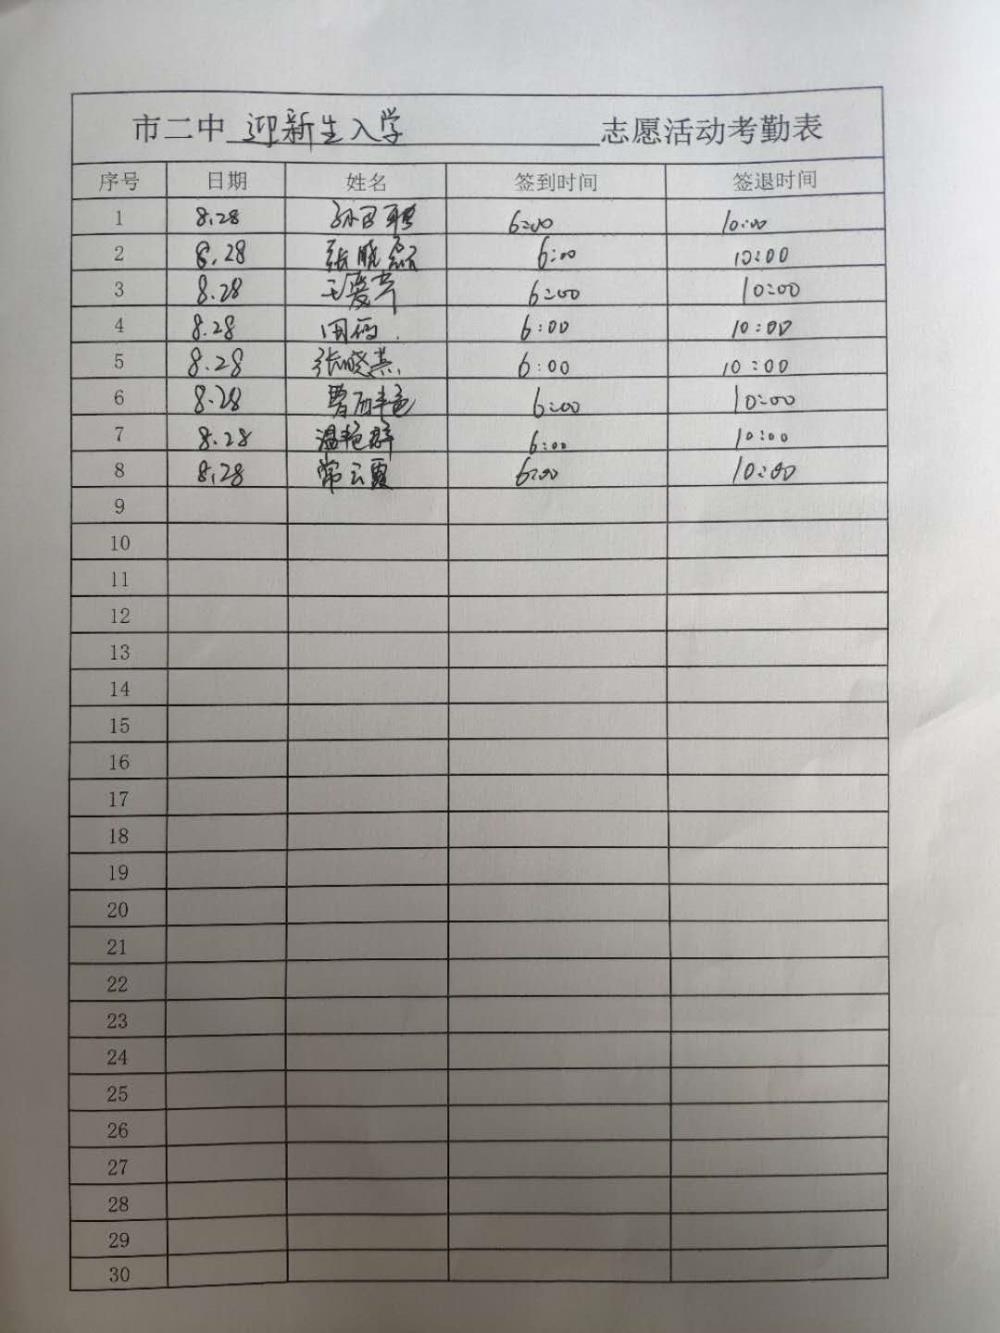 市二中 迎新生入学 志愿活动考勤表
序号 日期 姓名 签到时间 签退时间
1 8.28 6:00 10:00
2 8.28 张晓磊 6:00 10:00
3 8.28 王爱芹 6:00 10:00
4 8.28 6:00 10:00
5 8.28 张晓燕 6:00 10:00
6 8.28 6:00 10:00
7 8.28 温艳群 6:00 10:00
8 8.28 常云霞 6:00 10:00
9
10
11
12
13
14
15
16
17
18
19
20
21
22
23
24
25
26
27
28
29
30